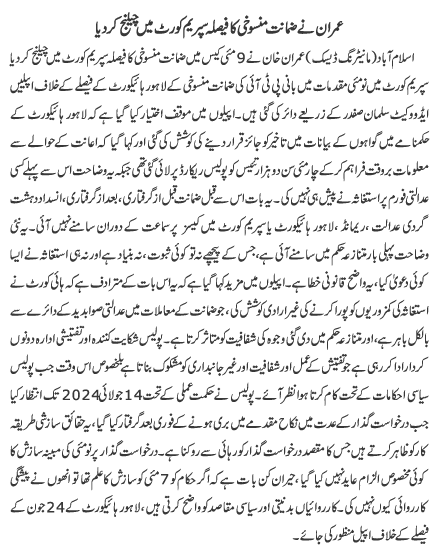 عمران نے ضمانت منسوخی کا فیصلہ سپریم کورٹ میں چیلنج کر دیا
اسلام آباد (مانیٹرنگ ڈیسک) عمران خان نے 9 مئی کیس میں ضمانت منسوخی کا فیصلہ سپریم کورٹ میں چیلنج کر دیا
سپریم کورٹ میں نو مئی مقدمات میں بانی پی ٹی آئی کی ضمانت منسوخی کے لاہور ہائیکورٹ کے فیصلے کے خلاف اپیلیں
ایڈووکیٹ سلمان صفدر کے زریعے دائر کی گئی ہیں۔ اپیلوں میں موقف اختیار کیا گیا ہے کہ لاہور ہائیکورٹ کے
حکمنامے میں گواہوں کے بیانات میں تاخیر کو جائز قرار دینے کی کوشش کی گئی اور کہا گیا کہ اعانت کے حوالے سے
معلومات بروقت فراہم کر کے چار مئی سن دو ہزار تئیس کو پولیس ریکارڈ پر لائی گئی تھی جبکہ یہ وضاحت اس سے پہلے کسی
عدالتی فورم پر استغاثہ نے پیش ہی نہیں کی۔ یہ بات اس سے قبل ضمانت قبل از گرفتاری، بعد از گرفتاری، انسداد دہشت
گردی عدالت، ریمانڈ، لاہور ہائیکورٹ یا سپریم کورٹ میں کیسز پر سماعت کے دوران سامنے نہیں آئی۔ یہ نئی
وضاحت پہلی بار متنازعہ حکم میں سامنے آئی ہے، جس کے پیچھے نہ تو کوئی ثبوت، نہ بنیاد ہے اور نہ ہی استغاثہ نے ایسا
کوئی دعویٰ کیا، یہ واضح قانونی خطا ہے۔ اپیلوں میں مزید کہا گیا ہے کہ یہ اس بات کے مترادف ہے کہ ہائی کورٹ نے
استغاثہ کی کمزوریوں کو پورا کرنے کی غیر ارادی کوشش کی، جو ضمانت کے معاملات میں عدالتی صوابدید کے دائرے سے
بالکل باہر ہے، اور متنازعہ حکم میں دی گئی وجوہ کی شفافیت کو متاثر کرتا ہے۔ پولیس شکایت کنندہ اور تفتیشی ادارہ دونوں
کردار ادا کر رہی ہے جو تفتیش کے عمل اور شفافیت اور غیر جانبداری کو مشکوک بناتا ہے بلخصوص اس وقت جب پولیس
سیاسی احکامات کے تحت کام کرتا ہوا نظر آئے۔ پولیس نے حکمت عملی کے تحت 14 جولائی 2024 تک انتظار کیا
جب درخواست گذار کے عدت میں نکاح مقدمے میں بری ہونے کے فوری بعد گرفتار کیا گیا، یہ حقائق سازشی طریقہ
کار کو ظاہر کرتے ہیں جس کا مقصد درخواست گذار کو رہائی سے روکنا ہے۔ درخواست گذار پر نو مئی کی مبینہ سازش کا
کوئی مخصوص الزام عاید نہیں کیا گیا، حیران کن بات ہے کہ اگر حکام کو 7 مئی کو سازش کا علم تھا تو انھوں نے پیشگی
کارروائی کیوں نہیں کی۔ کارروائیاں بدنیتی اور سیاسی مقاصد کو واضح کرتی ہیں، لاہور ہائیکورٹ کے 24 جون کے
فیصلے کے خلاف اپیل منظور کی جائے۔